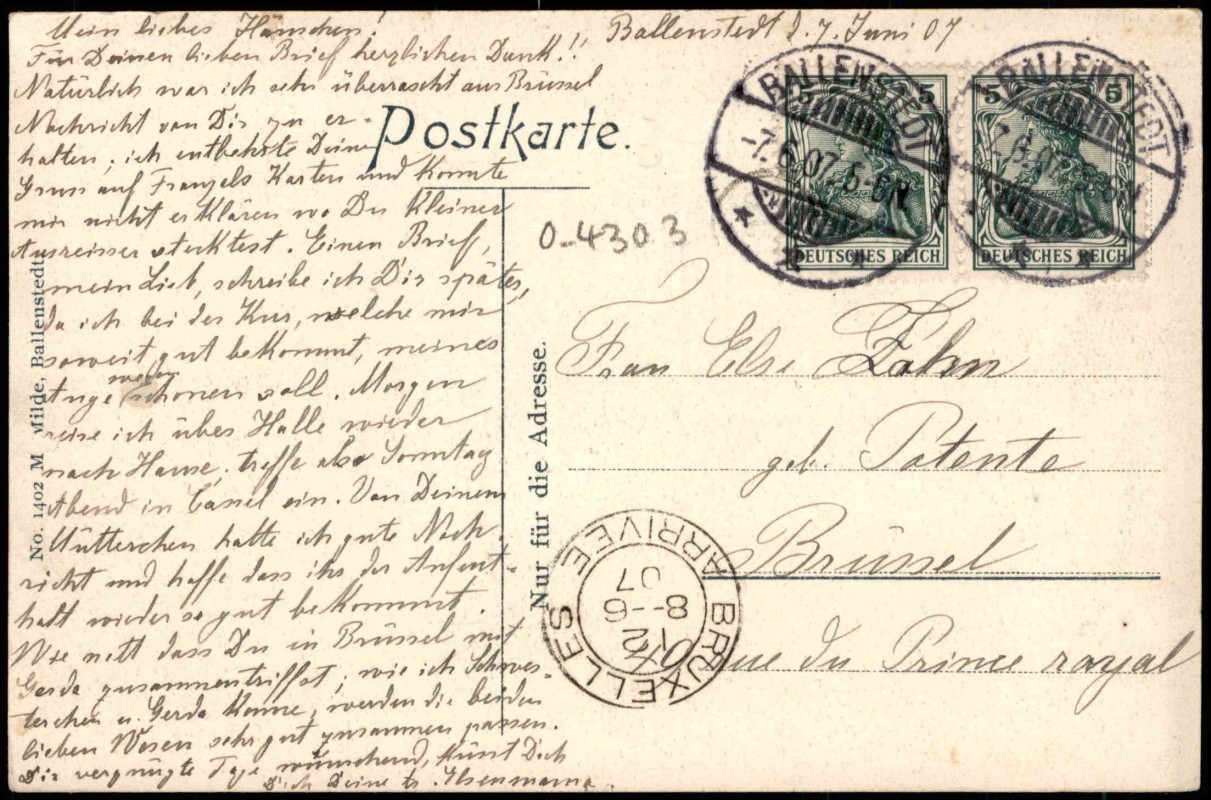 Mein liebes Hänschen!
Ballenstedt d. 7. Juni 07
Für Deinen lieben Brief herzlichen Dank!!
Natürlich war ich sehr überrascht aus Brüssel
Nachricht von Dir zu er-
halten; ich entbehrte Deine
Gruss auf Franzels Karten und konnte
mir nicht erklären wo Du kleiner
Ausreisser stecktest. Einen Brief,
mein Lieb, schreibe ich Dir später,
da ich bei der Kur, welche mir
soweit gut bekommt, meines
Auge schonen soll. Morgen
reise ich über Halle wieder
nach Hause, treffe also Sonntag
Abend in Cassel ein. Von Deinem
Mütterchen hatte ich gute Nach-
richt und hoffe dass ihr der Aufent-
halt wieder so gut bekommt.
Wie nett dass Du in Brüssel mit
Gerda zusammentriffst; wie ich Schwes-
terchen u. Gerda kenne, werden die beiden
lieben Wesen sehr gut zusammen passen.
Dir vergnügte Tage wünschend, küsst Dich
Dich Deine tr. Ilsenmama.
Postkarte.
No. 1402 M Milde, Ballenstedt
Nur für die Adresse.
0-4303
BALLENSTEDT
-7.6.07.5-6N
5 5
DEUTSCHES REICH
BALLENSTEDT
5 5
DEUTSCHES REICH
Frau Else Zahn
geb. Potente
Brüssel
rue du Prince royal
BRUXELLES ARRIVEE
8-6
07